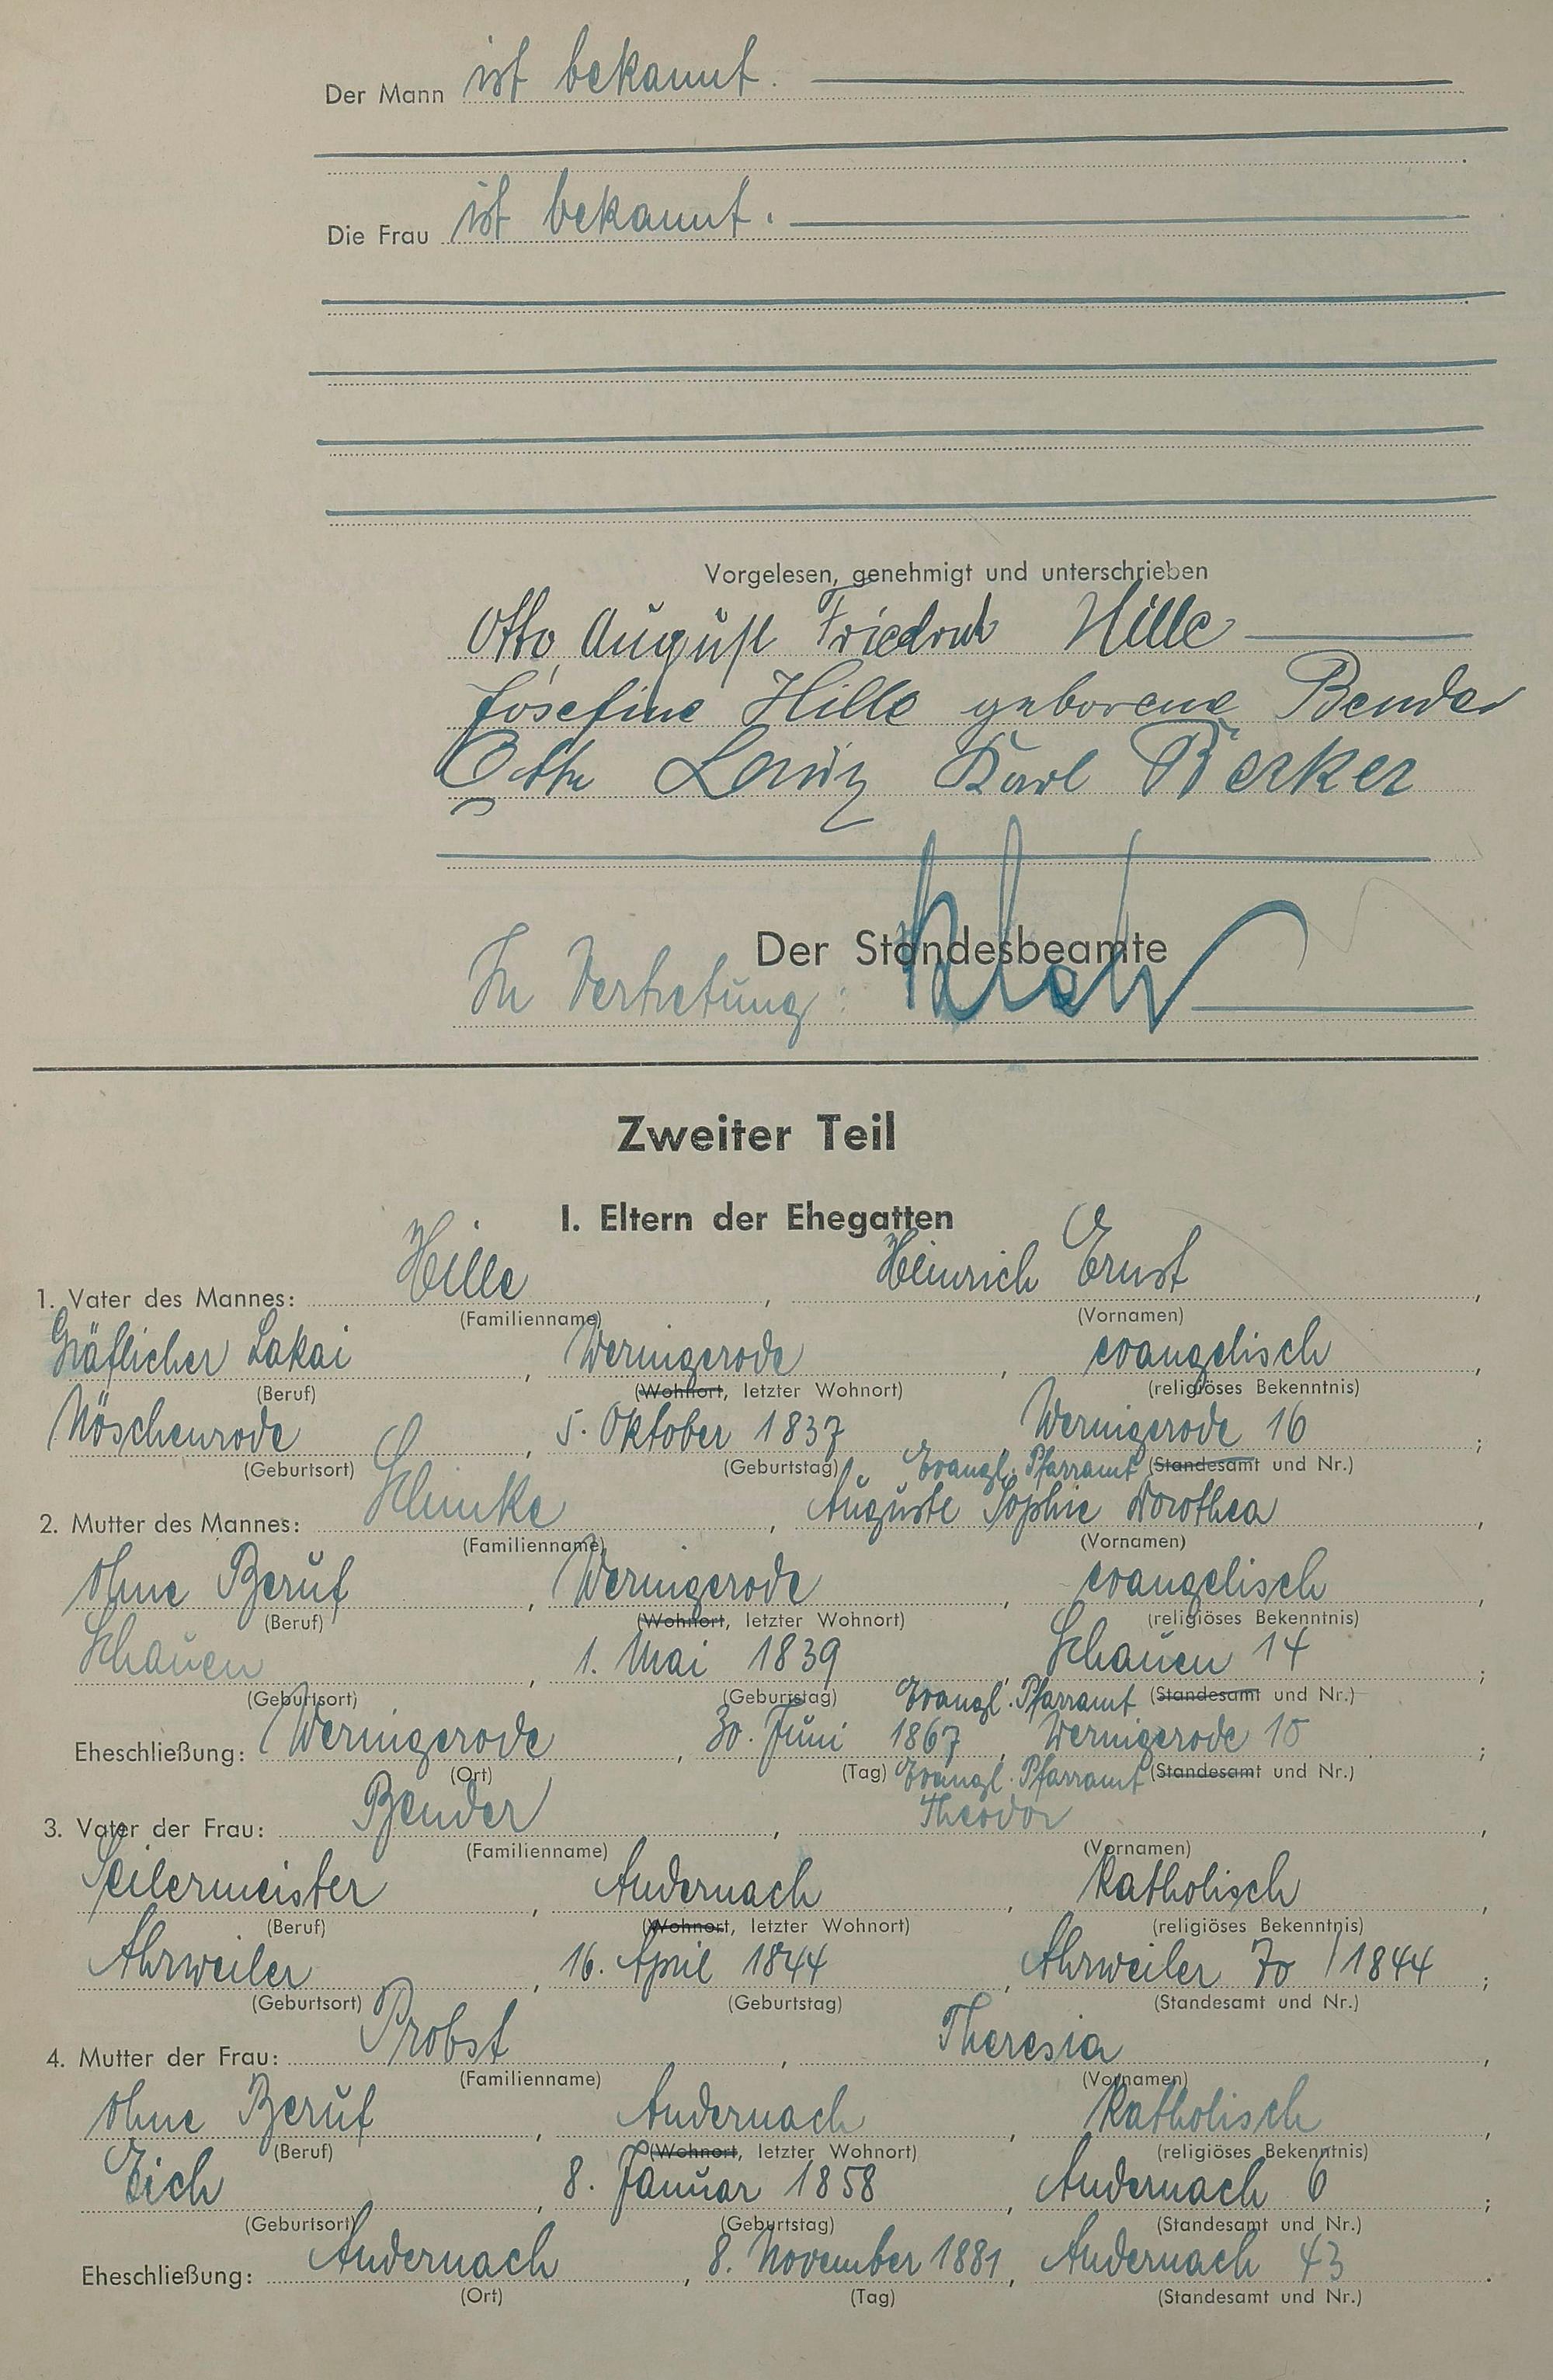 Der Mann ist bekannt.
Die Frau ist bekannt.
Vorgelesen, genehmigt und unterschrieben
Otto August Friedrich Hille
Josefine Hille geborene Bender
Otto Karl Becker
Der Standesbeamte
In Vertretung:
Zweiter Teil
I. Eltern der Ehegatten
1. Vater des Mannes: Hille, Heinrich Ernst,
(Familienname) (Vornamen)
Gräflicher Lakai, Wernigerode, evangelisch,
(Beruf) (Wohnort, letzter Wohnort) (religiöses Bekenntnis)
Nöschenrode, 5. Oktober 1837 Wernigerode 16;
(Geburtsort) (Geburtstag) Evangl. Pfarramt (Standesamt und Nr.)
2. Mutter des Mannes: Schinke, Auguste Sophie Dorothea,
(Familienname) (Vornamen)
ohne Beruf, Wernigerode, evangelisch,
(Beruf) (Wohnort, letzter Wohnort) (religiöses Bekenntnis)
Schauen, 1. Mai 1839, Schauen 14;
(Geburtsort) (Geburtstag) Evangl. Pfarramt (Standesamt und Nr.)
Eheschließung: Wernigerode, 30. Juni 1867, Wernigerode 10;
(Ort) (Tag) Evangl. Pfarramt (Standesamt und Nr.)
3. Vater der Frau: Bender, Theodor,
(Familienname) (Vornamen)
Seilermeister, Andernach, katholisch,
(Beruf) (Wohnort, letzter Wohnort) (religiöses Bekenntnis)
Ahrweiler, 16. April 1844, Ahrweiler 70/1844;
(Geburtsort) (Geburtstag) (Standesamt und Nr.)
4. Mutter der Frau: Probst, Theresia,
(Familienname) (Vornamen)
ohne Beruf, Andernach, katholisch,
(Beruf) (Wohnort, letzter Wohnort) (religiöses Bekenntnis)
Eich, 8. Januar 1858, Andernach 6;
(Geburtsort) (Geburtstag) (Standesamt und Nr.)
Eheschließung: Andernach, 8. November 1881, Andernach 43.
(Ort) (Tag) (Standesamt und Nr.)